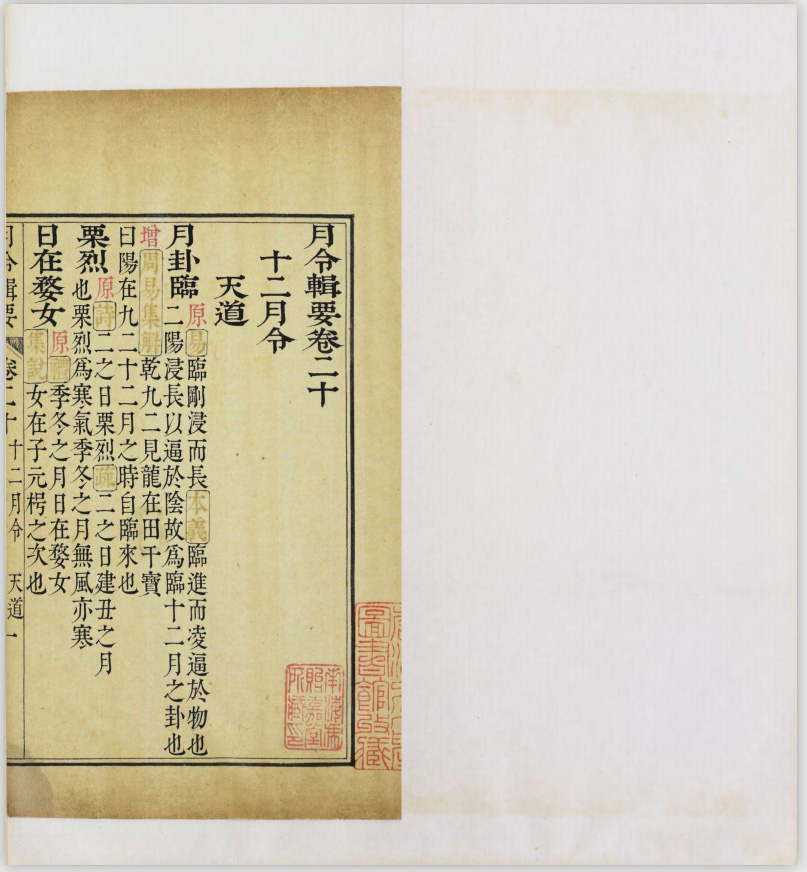 月令輯要卷二十
十二月令
天道
月卦臨原易臨剛浸而長本義臨進而凌逼於物也
二陽浸長以逼於陰故爲臨十二月之卦也
增周易集解乾九二見龍在田干寶
曰陽在九二十二月之時自臨來也
栗烈原詩二之日栗烈疏二之日建丑之月
也栗烈爲寒氣季冬之月無風亦寒
日在婺女原禮季冬之月日在婺女
集說女在子元枵之次也
月令輯要 卷二十 十二月令 天道 一